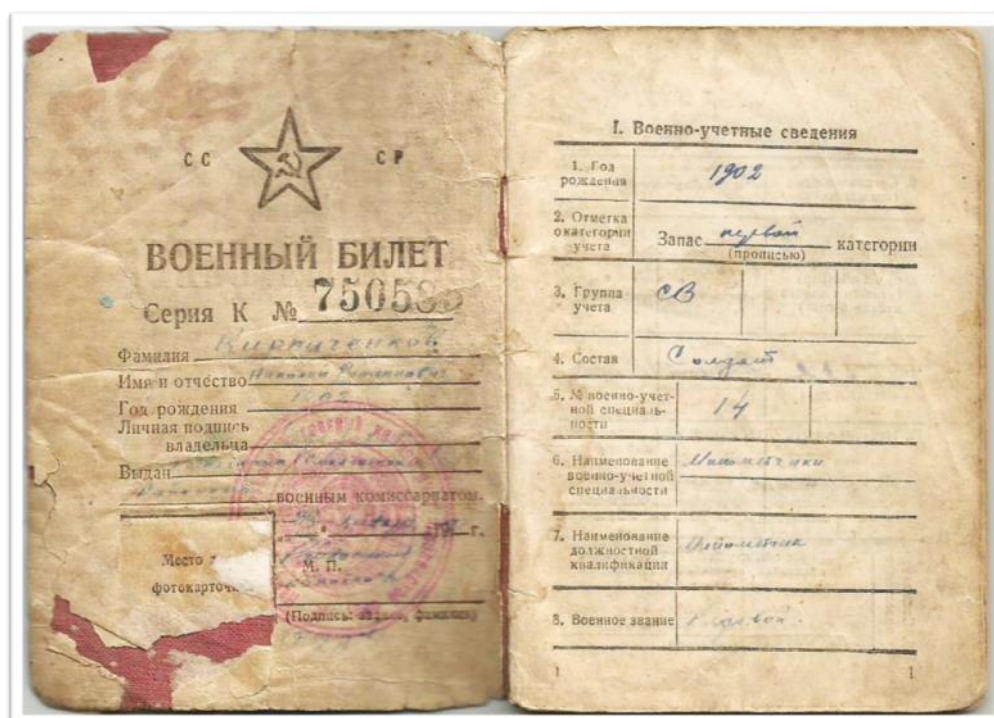 СС СР
ВОЕННЫЙ БИЛЕТ
Серия К № 750585
Фамилия Кирпиченков
Имя и отчество Николай
Год рождения 1902
Личная подпись
владельца
Выдан
военным комиссариатом.
г.
Место
М. П.
фотокарточ
(Подпись: звание, фамилия)
I. Военно-учетные сведения
1. Год
рождения
1902
2. Отметка
о категории
учета
Запас первой категории
(прописью)
3. Группа
учета
СВ
4. Состав Солдат
5. № военно-учет-
ной специаль-
ности
14
6. Наименование
военно-учетной
специальности
Минометчики
7. Наименование
должностной
квалификации
Минометчик
8. Военное звание Рядовой.
1 1